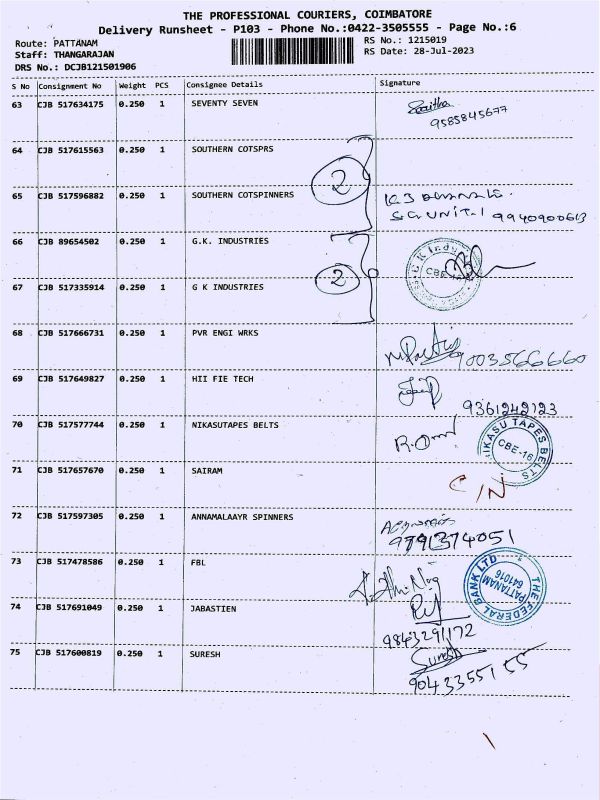 THE PROFESSIONAL COURIERS, COIMBATORE
Delivery Runsheet - P103 - Phone No.:0422-3505555 - Page No.:6
Route: PATTANAM
RS No.: 1215019
Staff: THANGARAJAN
RS Date: 28-Jul-2023
DRS No.: DCJB121501906
S No Consignment No Weight PCS Consignee Details Signature
63 CJB 517634175 0.250 1 SEVENTY SEVEN
9585845677
64 CJB 517615563 0.250 1 SOUTHERN COTSPRS
2
65 CJB 517596882 0.250 1 SOUTHERN COTSPINNERS
SC UNIT-1 9940900613
66 CJB 89654502 0.250 1 G.K. INDUSTRIES
2
67 CJB 517335914 0.250 1 G K INDUSTRIES
68 CJB 517666731 0.250 1 PVR ENGI WRKS
9003566660
69 CJB 517649827 0.250 1 HII FIE TECH
9361242123
70 CJB 517577744 0.250 1 NIKASUTAPES BELTS
NIKASU TAPES BELTS
CBE-16
71 CJB 517657670 0.250 1 SAIRAM
C/N
72 CJB 517597305 0.250 1 ANNAMALAAYR SPINNERS
9791374051
73 CJB 517478586 0.250 1 FBL
THE FEDERAL BANK LTD
PATTANAM
641016
74 CJB 517691049 0.250 1 JABASTIEN
9843291172
75 CJB 517600819 0.250 1 SURESH
Suresh
9043355155